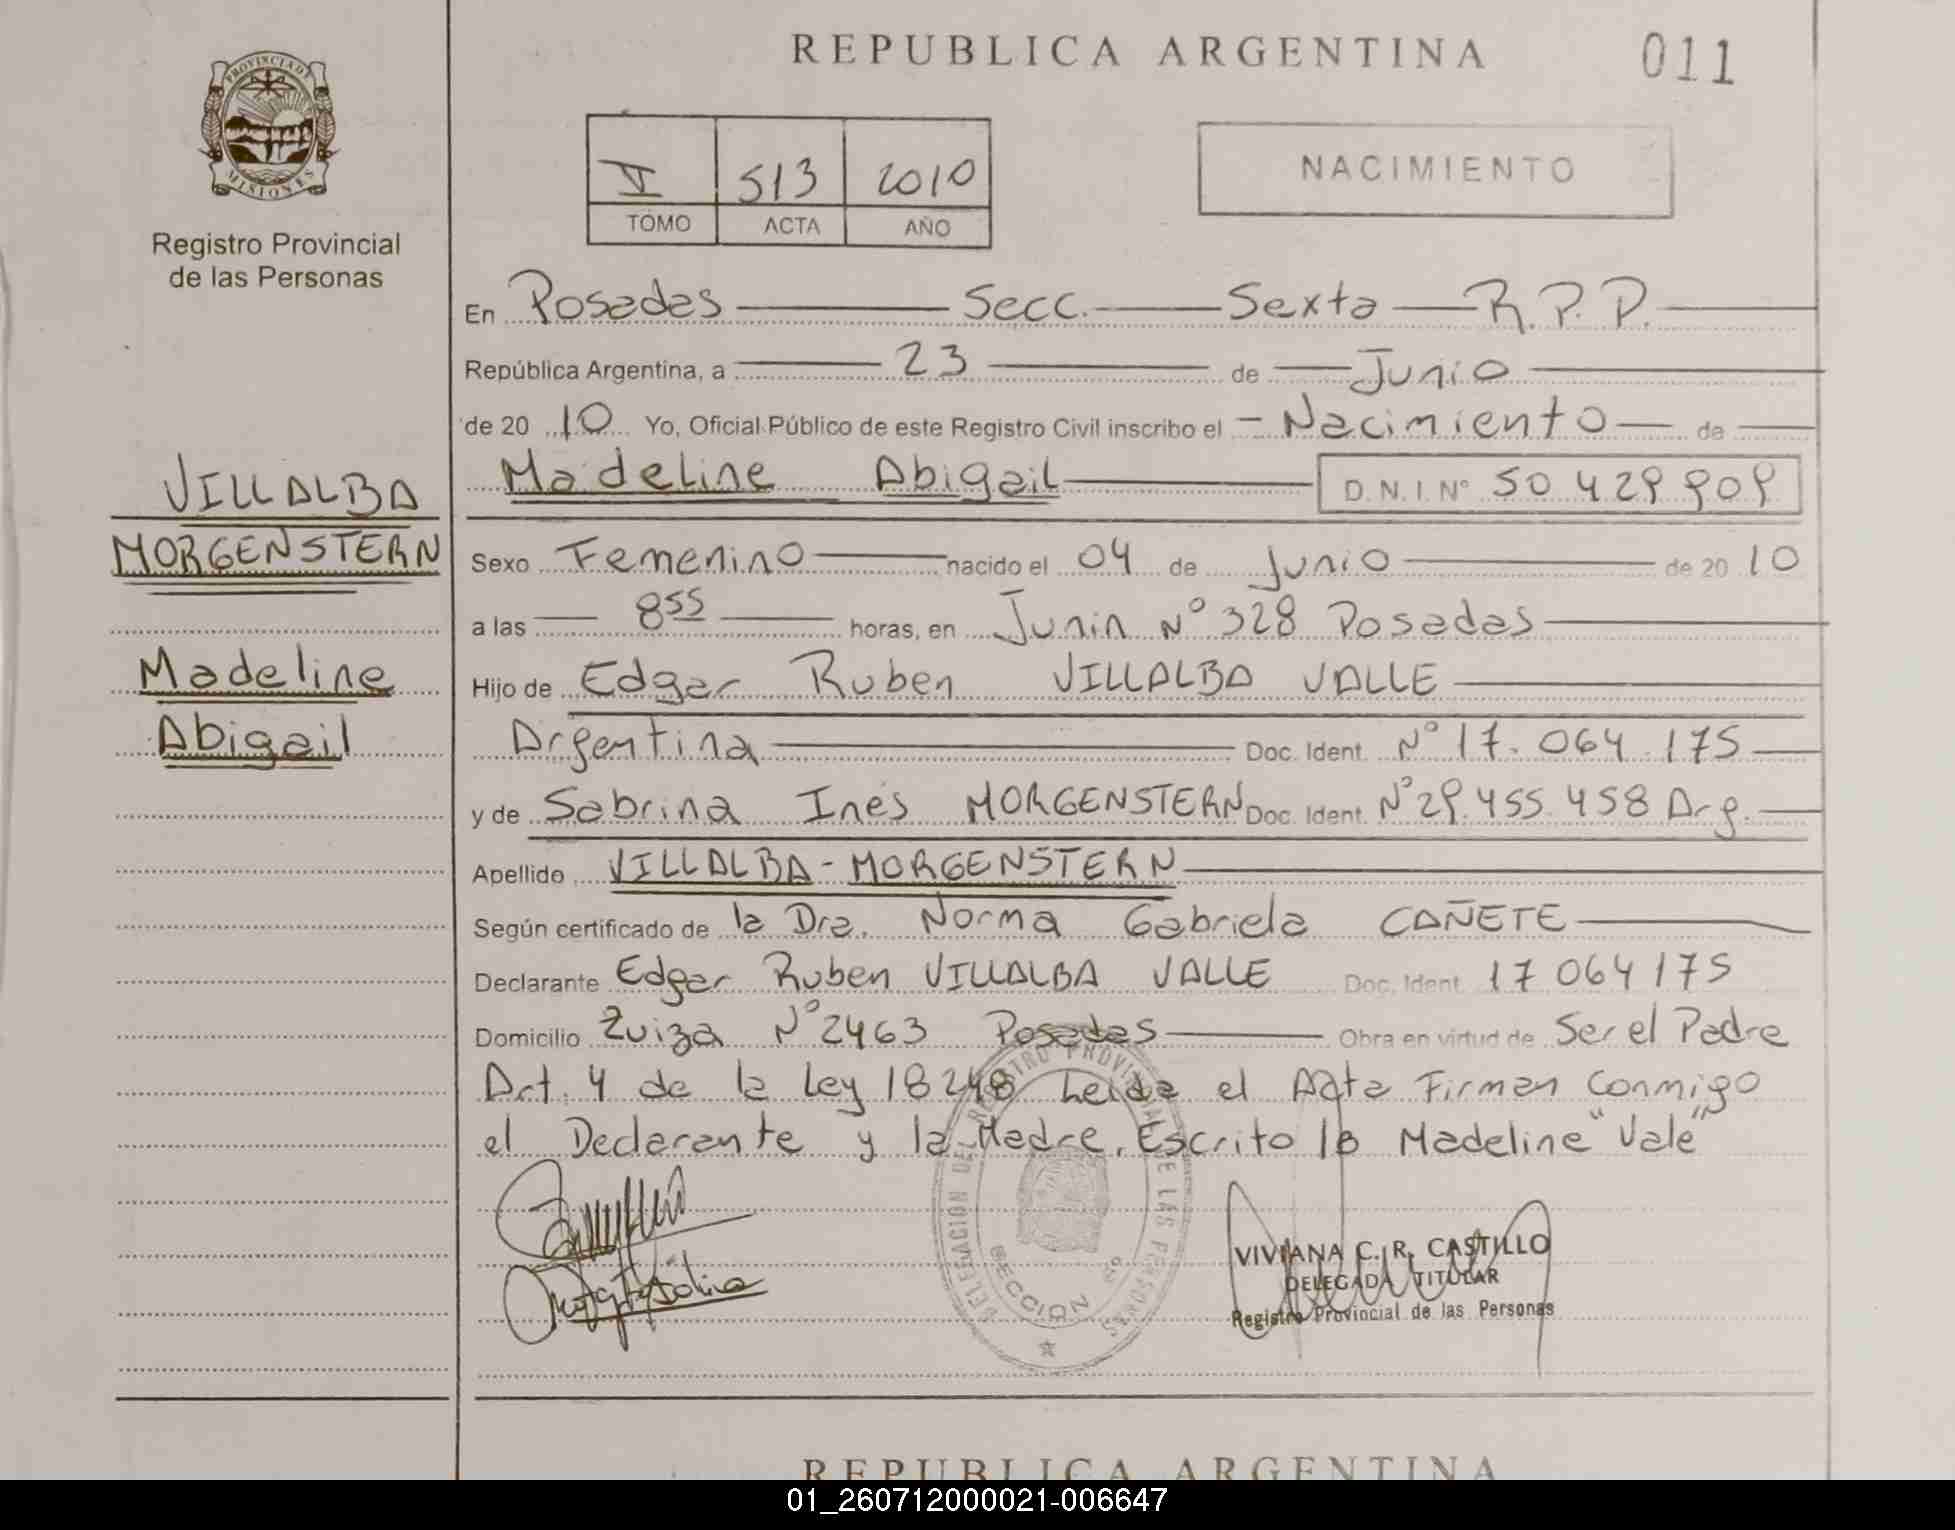 REPUBLICA ARGENTINA
011
PROVINCIA DE
MISIONES
Registro Provincial
de las Personas
V 513 2010
TOMO ACTA AÑO
NACIMIENTO
En Posadas Secc. Sexta R.P.P.
República Argentina, a 23 de Junio
de 20 10 Yo, Oficial Público de este Registro Civil inscribo el Nacimiento de
Madeline Abigail D.N.I Nº 50 429 909
VILLALBA
MORGENSTERN
Madeline
Abigail
Sexo Femenino nacido el 04 de Junio de 20 10
a las 8 55 horas, en Junin Nº 328 Posadas
Hijo de Edgar Ruben VILLALBA VALLE
Argentina Doc. Ident. Nº 17.064.175
y de Sabrina Inés MORGENSTERN Doc. Ident. Nº 29.455.458 Arg.
Apellido VILLALBA-MORGENSTERN
Según certificado de la Dra. Norma Gabriela CAÑETE
Declarante Edgar Ruben VILLALBA VALLE Doc. Ident. 17 064 175
Domicilio Zuiza Nº 2463 Posadas Obra en virtud de Ser el Padre
Art. 4 de la Ley 18248 Leida el Acta Firman Conmigo
el Declarante y la Madre. Escrito lo Madeline "Vale"
DELEGACION DEL REGISTRO PROVINCIAL DE LAS PERSONAS
SECCION 6º
VIVIANA C. R. CASTILLO
DELEGADA TITULAR
Registro Provincial de las Personas
REPUBLICA ARGENTINA
01_260712000021-006647